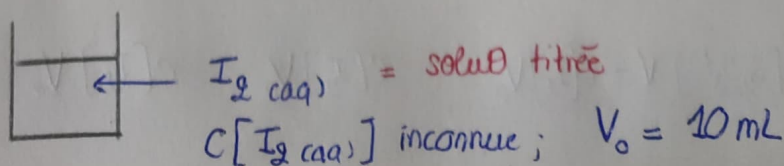 I₂ (aq) = soluθ titrée
C[I₂ (aq)] inconnue ; V₀ = 10 mL